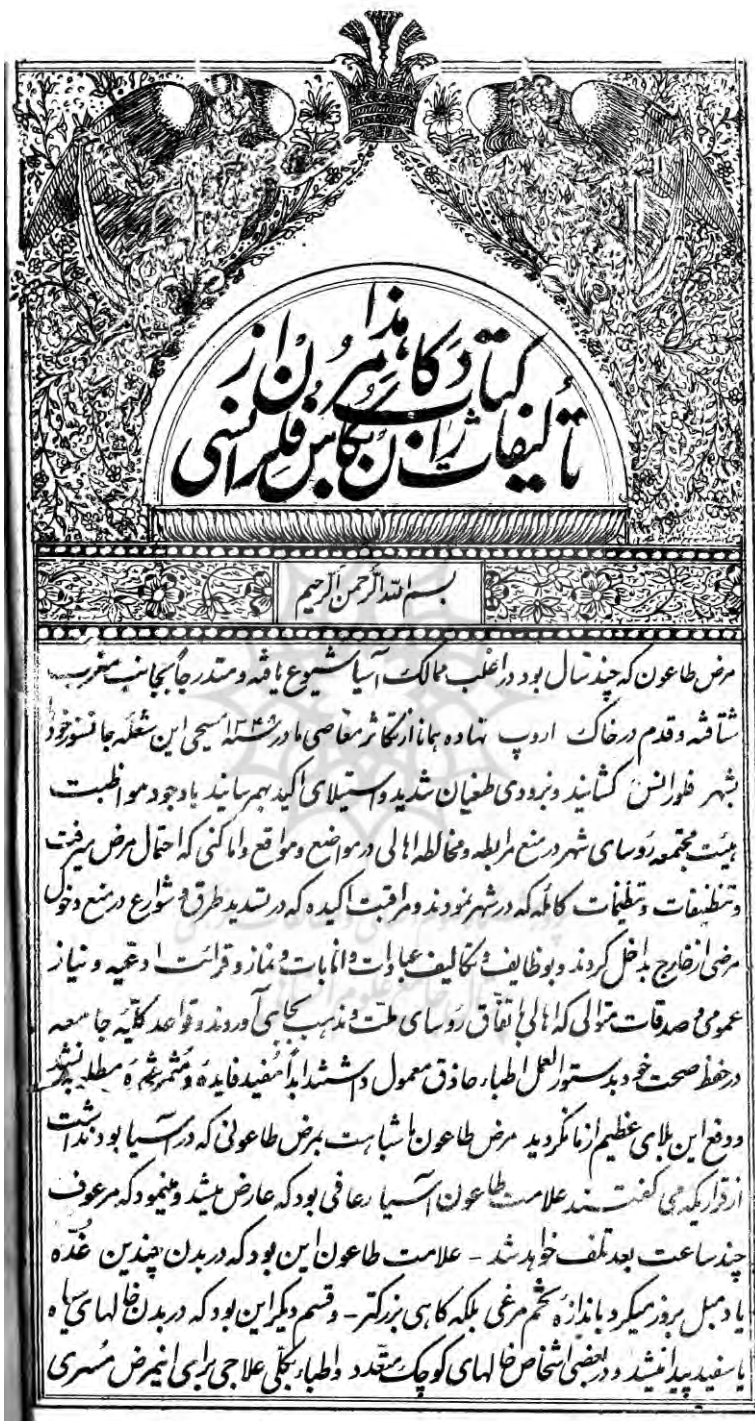 هذا
کتاب دکامرُن از
تألیفات ژان بُکاس فلرانسی
بسم الله الرحمن الرحیم
مرض طاعون که چند سال بود در اغلب ممالک آسیا شیوع یافته و متدرجاً بجانب مغرب
شتافته و قدم در خاک اروپ نهاده همانا از تکاثر معاصی ما در سنه ۱۳۴۸ مسیحی این شعله جانسوز خود
بشهر فلورانس کشانید و بزودی طغیان شدید و استیلای اکید بهم رسانید با وجود مواظبت
هیئت مجتمعه رؤسای شهر در منع مرابطه و مخالطه اهالی در مواضع و مواقع و اماکنی که احتمال مرض میرفت
و تنظیفات و تنظیمات کامله که در شهر نمودند و مراقبت اکیده که در تسدید طرق و شوارع در منع دخول
مرضی از خارج بداخل کردند و بوظایف و تکالیف عبادات و انابات و نماز و قرائت ادعیه و نیاز
عمومی و صدقات متوالی که اهالی باتفاق رؤسای ملت و مذهب بجای آوردند و قواعد کلیه جامعه
در حفظ صحت خود بدستورالعمل اطباء حاذق معمول داشتند ابداً مفید فایده و مثمر ثمره مطلوبه نشد
و دفع این بلای عظیم از ما نکردید مرض طاعون ما شباهت بمرض طاعونی که در آسیا بود نداشت
از قراریکه می گفتند علامت طاعون آسیا رعافی بود که عارض میشد و مینمود که مرعوف
چند ساعت بعد تلف خواهد شد - علامت طاعون این بود که در بدن چندین غده
یا دمبل بروز میکرد باندازه تخم مرغی بلکه کاهی بزرکتر - و قسم دیکر این بود که در بدن خالهای سیاه
یا سفید پیدا میشد و در بعضی اشخاص خالهای کوچک متعدد و اطباء بکلی علاجی برای اینمرض مسری